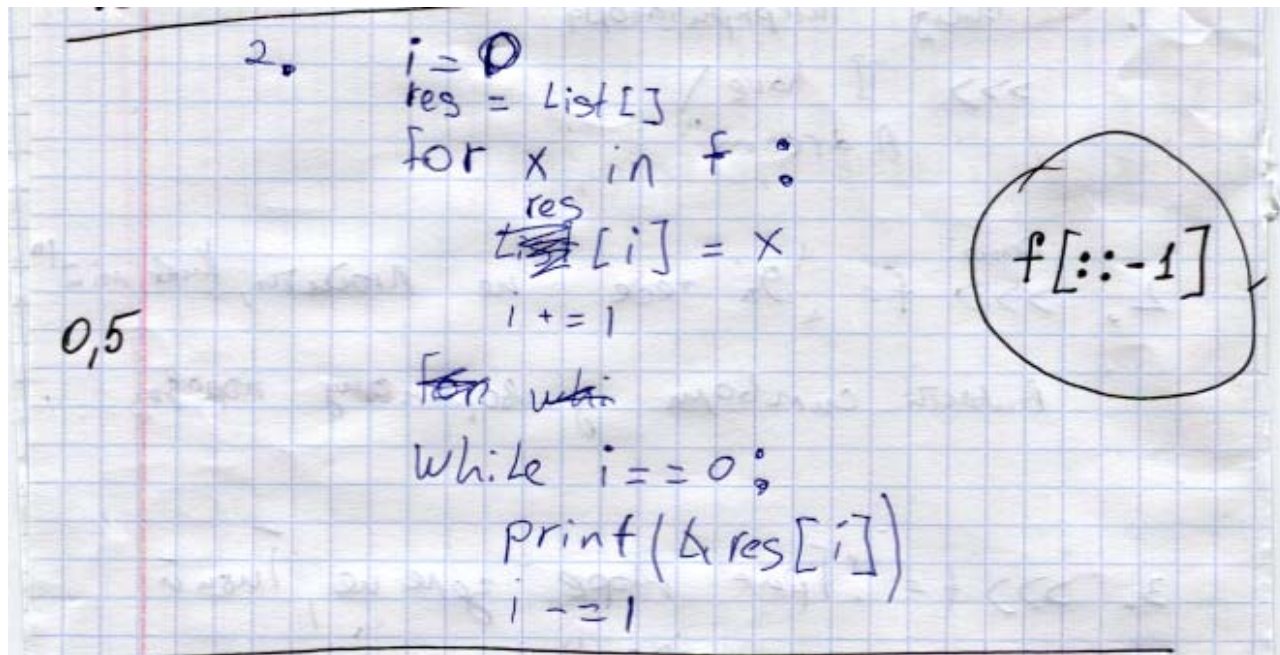 2. i = 0
res = List[]
for x in f :
res
[i] = x
i += 1
0,5
f[::-1]
for whi
while i == 0 :
print(& res[i])
i -= 1